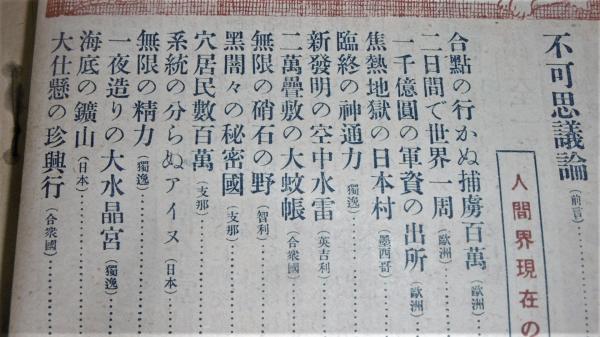 不可思議論（前言）
人間界現在の
合點の行かぬ捕虜百萬（歐洲）
二日間で世界一周（歐洲）
一千億圓の軍資の出所（歐洲）
焦熱地獄の日本村（墨西哥）
臨終の神通力（獨逸）
新發明の空中水雷（英吉利）
二萬疊敷の大蚊帳（合衆國）
無限の硝石の野（智利）
黑闇々の秘密國（支那）
穴居民數百萬（支那）
系統の分らぬアイヌ（日本）
無限の精力（獨逸）
一夜造りの大水晶宮（獨逸）
海底の鑛山（日本）
大仕懸の珍興行（合衆國）